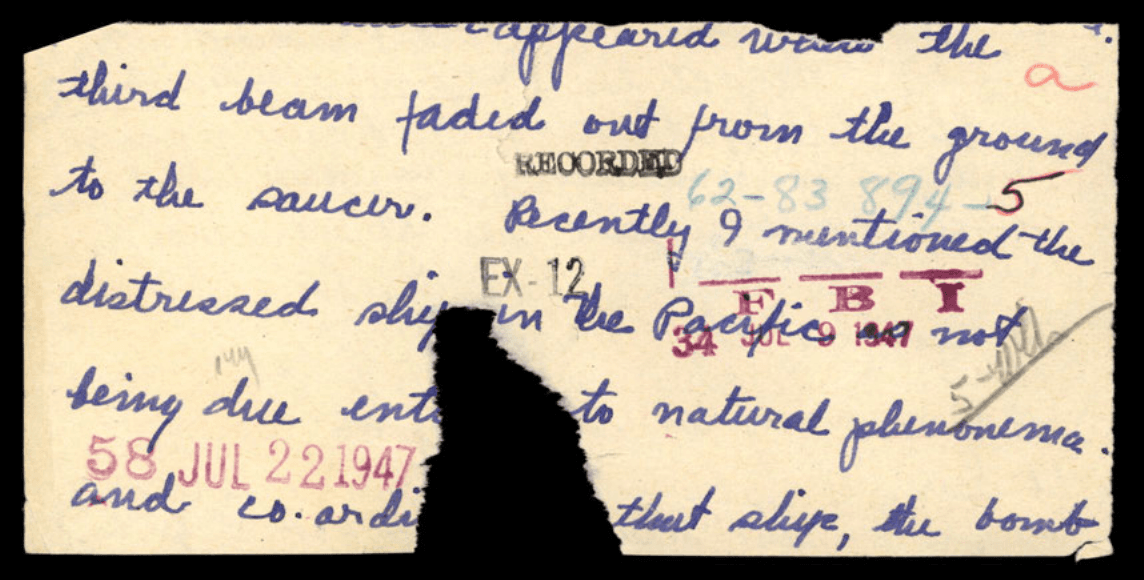 appeared when the
a
third beam faded out from the ground
RECORDED
to the saucer. Recently I mentioned the
62-83 894-5
distressed ship in the Pacific as not
EX-12
F B I
34 JUL 9 1947
being due ent to natural phenonema.
58 JUL 22 1947
and co.ordi that ship, the bomb